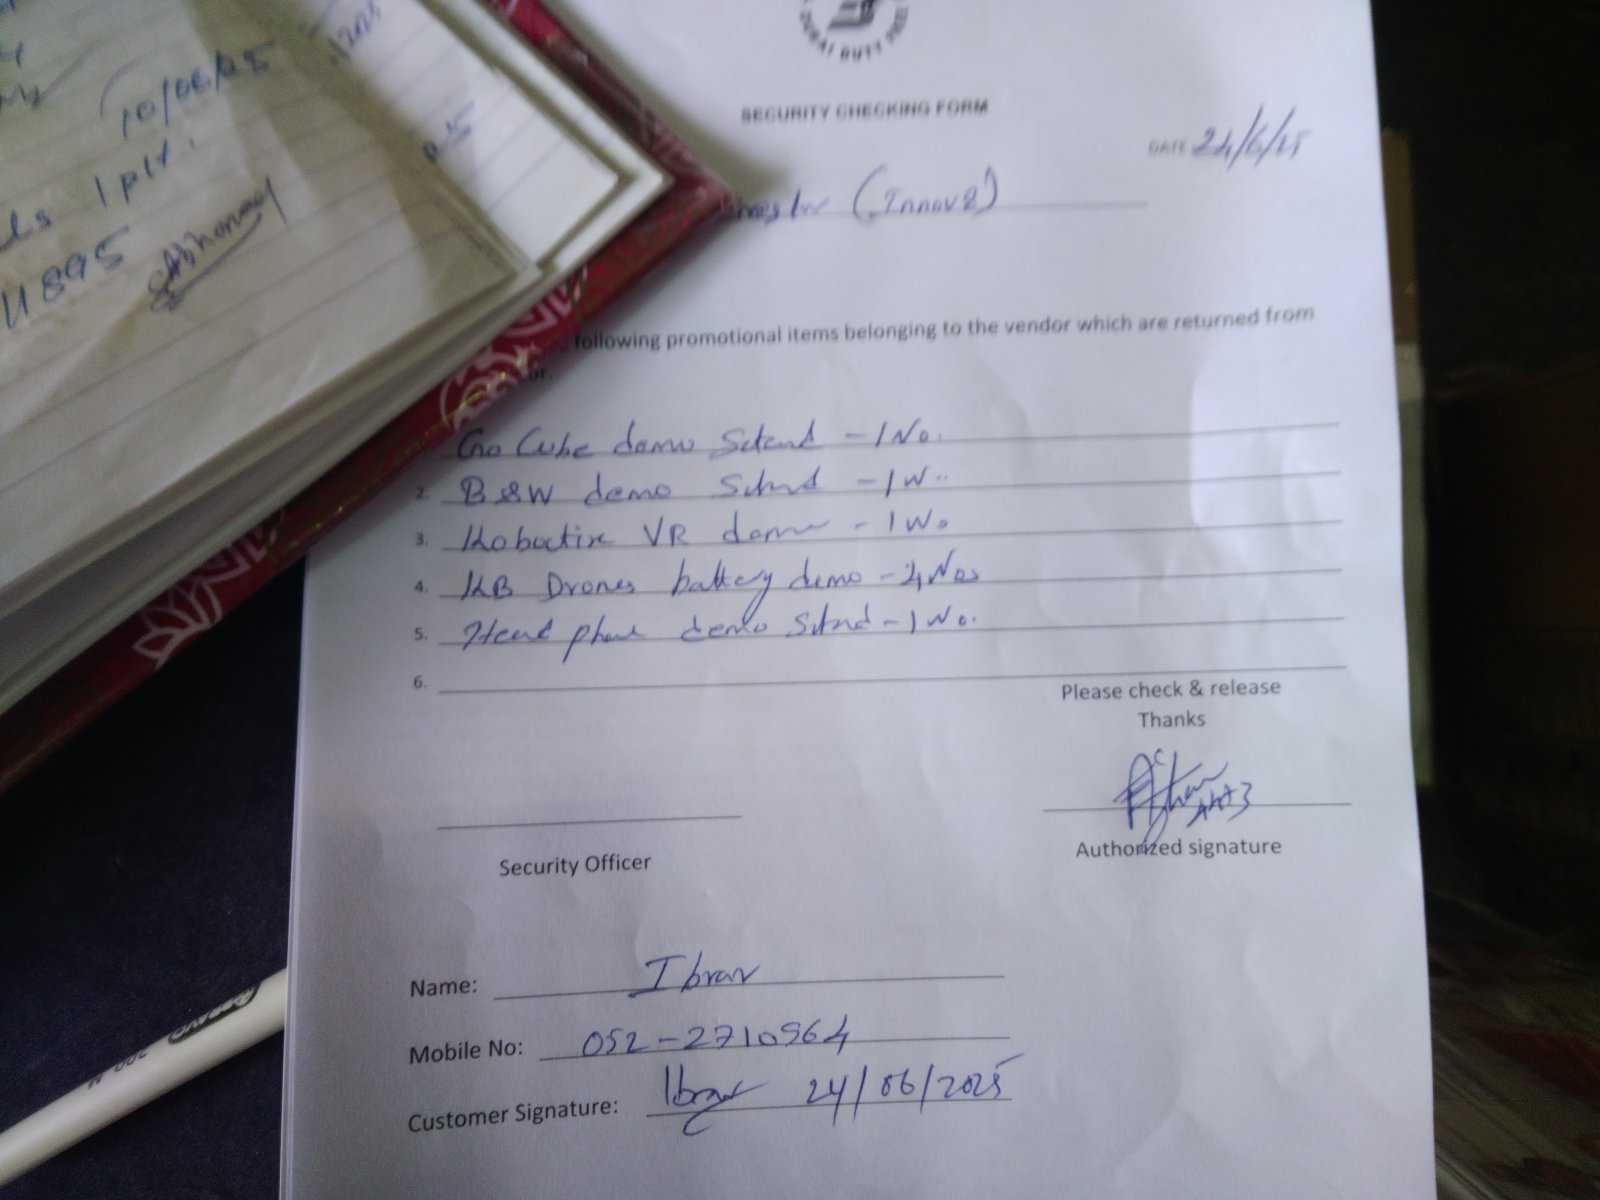 10/06/25
1 pkt.
4895
DUBAI DUTY FREE
SECURITY CHECKING FORM
DATE 24/6/25
(Innov8)
following promotional items belonging to the vendor which are returned from
or.
Go Cube demo Stand - 1 No.
2. B&W demo Stand - 1 No.
3. VR demo - 1 No
4. KB Drones battery demo - 4 Nos
5. Head phone demo Stand - 1 No.
6.
Please check & release
Thanks
Security Officer
Authorized signature
Name: Ibrar
Mobile No: 052-2710564
Customer Signature: Ibrar 24/06/2025